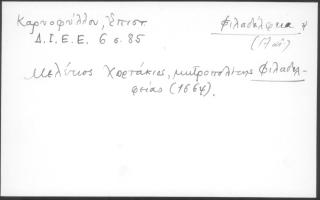 Καρυοφύλλου, Ἐπιστ.
Δ.Ι.Ε.Ε. 6 σ. 85
Φιλαδέλφεια
Μελέτιος Χορτάκιος, μητροπολίτης Φιλαδελ-
φείας (1664).